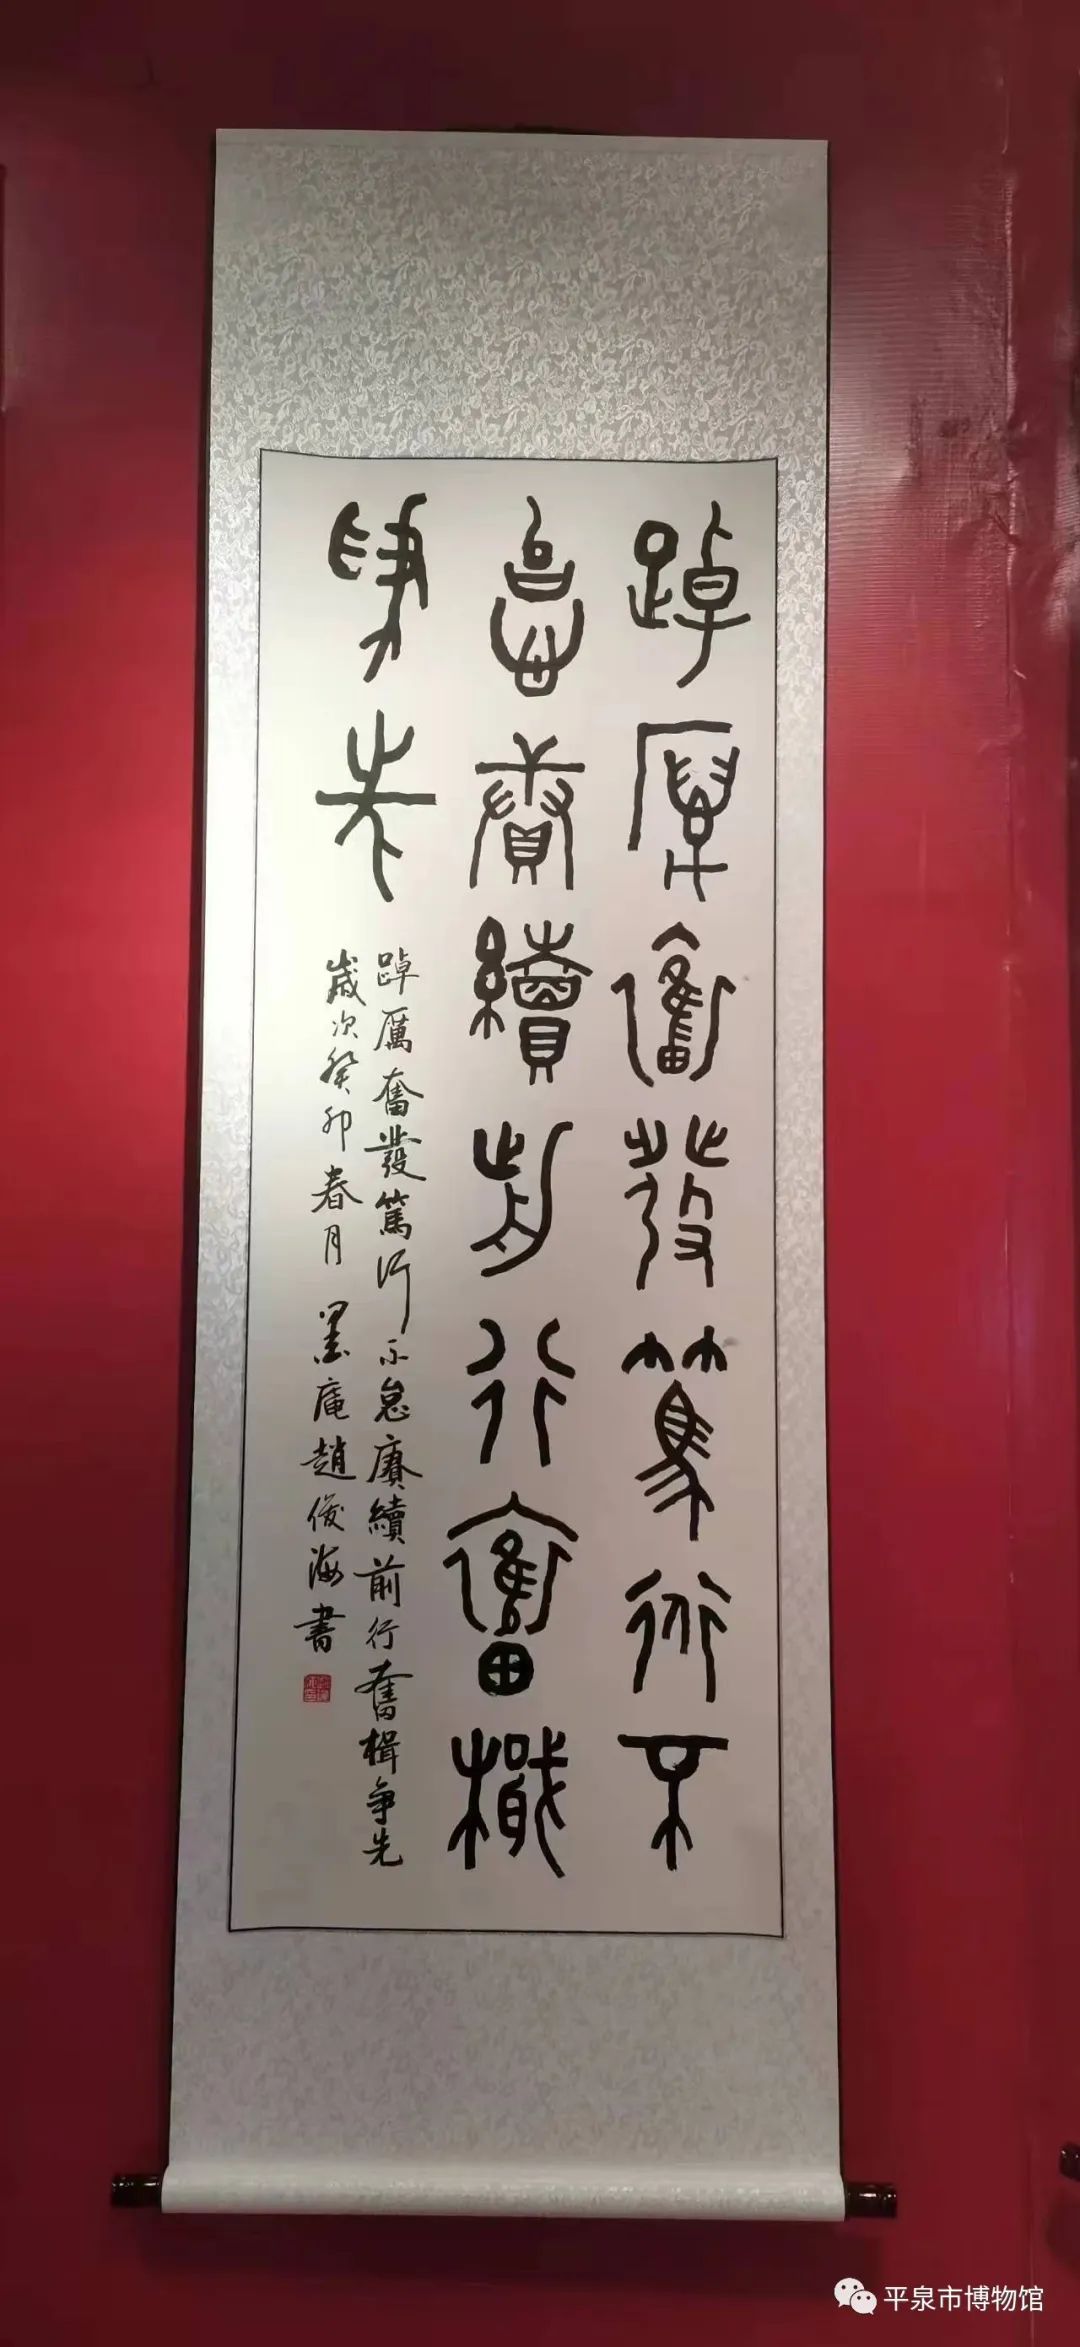 踔厲奮發篤行不
怠賡續前行奮楫
爭先
踔厲奮發篤行不怠賡續前行奮楫争先
歲次癸卯春月墨庵趙俊海書
平泉市博物馆